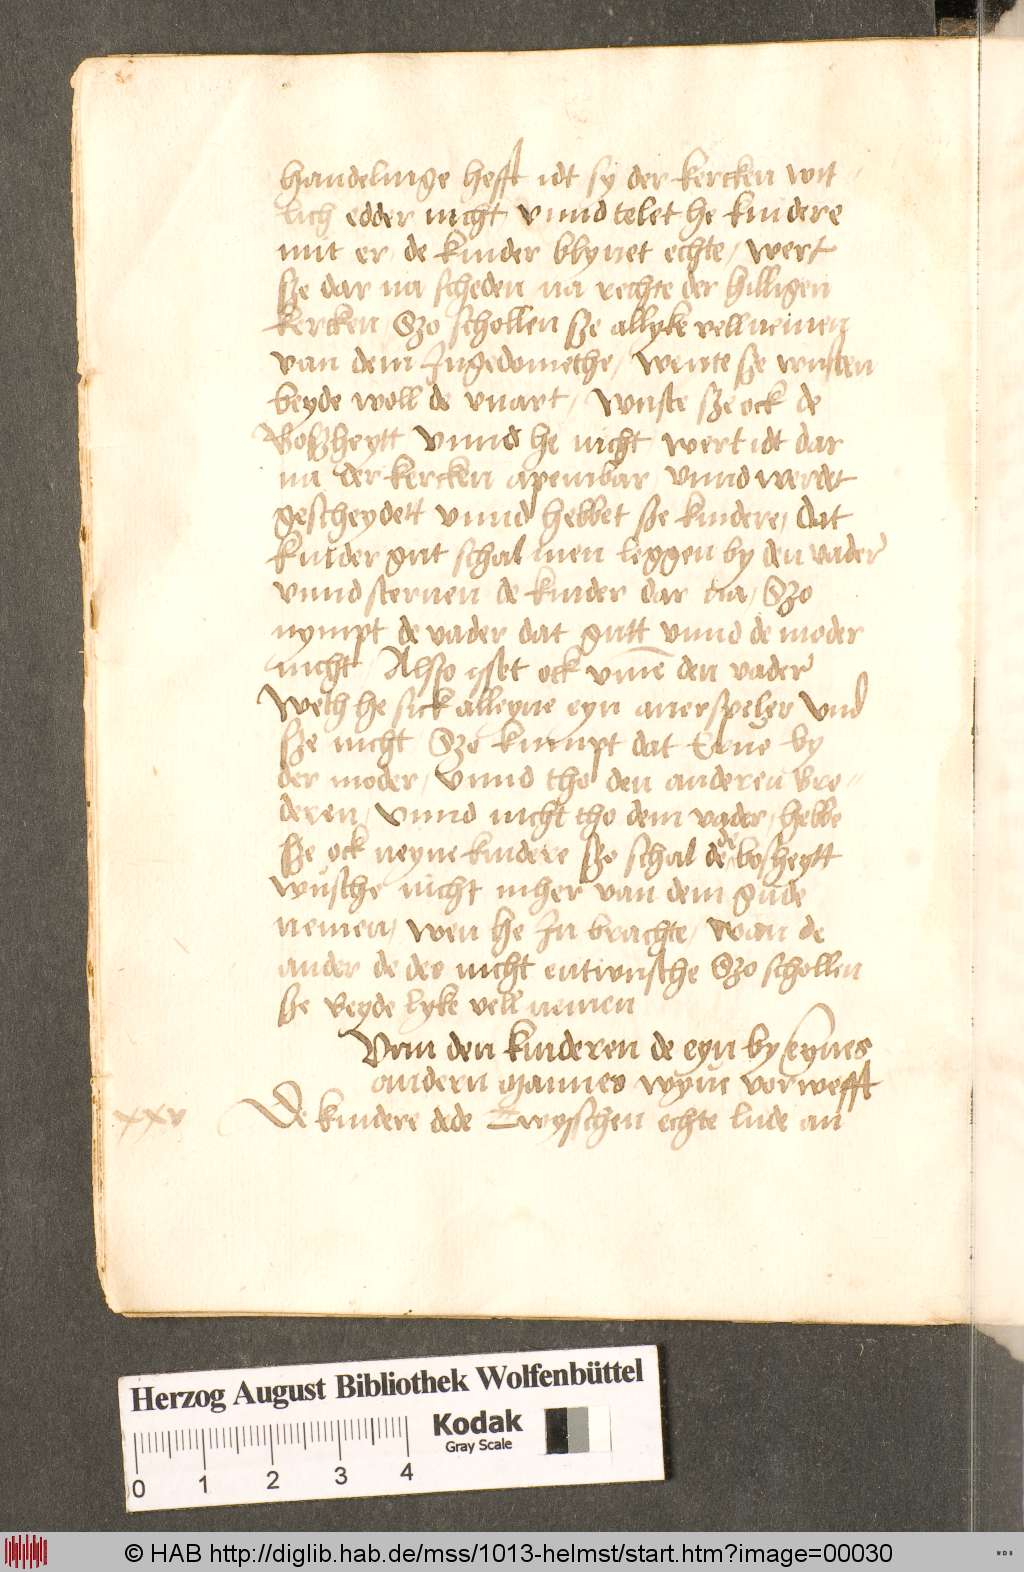 handelinge hefft idt sy der kercken wit
lich edder nicht vnnd telet he kindere
mit er / de kinder blyuet echte / wert
sze dar na scheden na rechte der hilligen
kercken Szo schollen sze allyke vell nemen
van dem Ingedomethe / wente sze wusten
beyde woll de vnart / wuste sze ock de
Boszheytt vnnd he nicht wert idt dar
na der kercken apembar vnnd werdet
gescheydett vnnd hebbet sze kindere / dat
kinder gut schal men leggen by den vader
vnnd steruen de kinder dar na / Szo
nympt de vader dat gutt vnnd de moder
nicht / Alsso ysset ock vmme den vader
Weth he sick alleyne eyn anerspeler vnd
sze nicht Szo kumpt dat Erue by
der moder / vnnd tho den anderen bro-
deren / vnnd nicht tho dem vader / hebbe
sze ock neyne kindere szo schal de de bosheytt
wusche nicht mher van dem gude
nemen / wen he In brachte / wan de
ander de des nicht entwusche Szo schollen
sze beyde lyke vell nemen
Van den kinderen de eyn by eynes
andern mannes wyue vorwefft
xxv De kindere dede Twysschen echte lude an
Herzog August Bibliothek Wolfenbüttel
Kodak
Gray Scale
0 1 2 3 4
© HAB http://diglib.hab.de/mss/1013-helmst/start.htm?image=00030